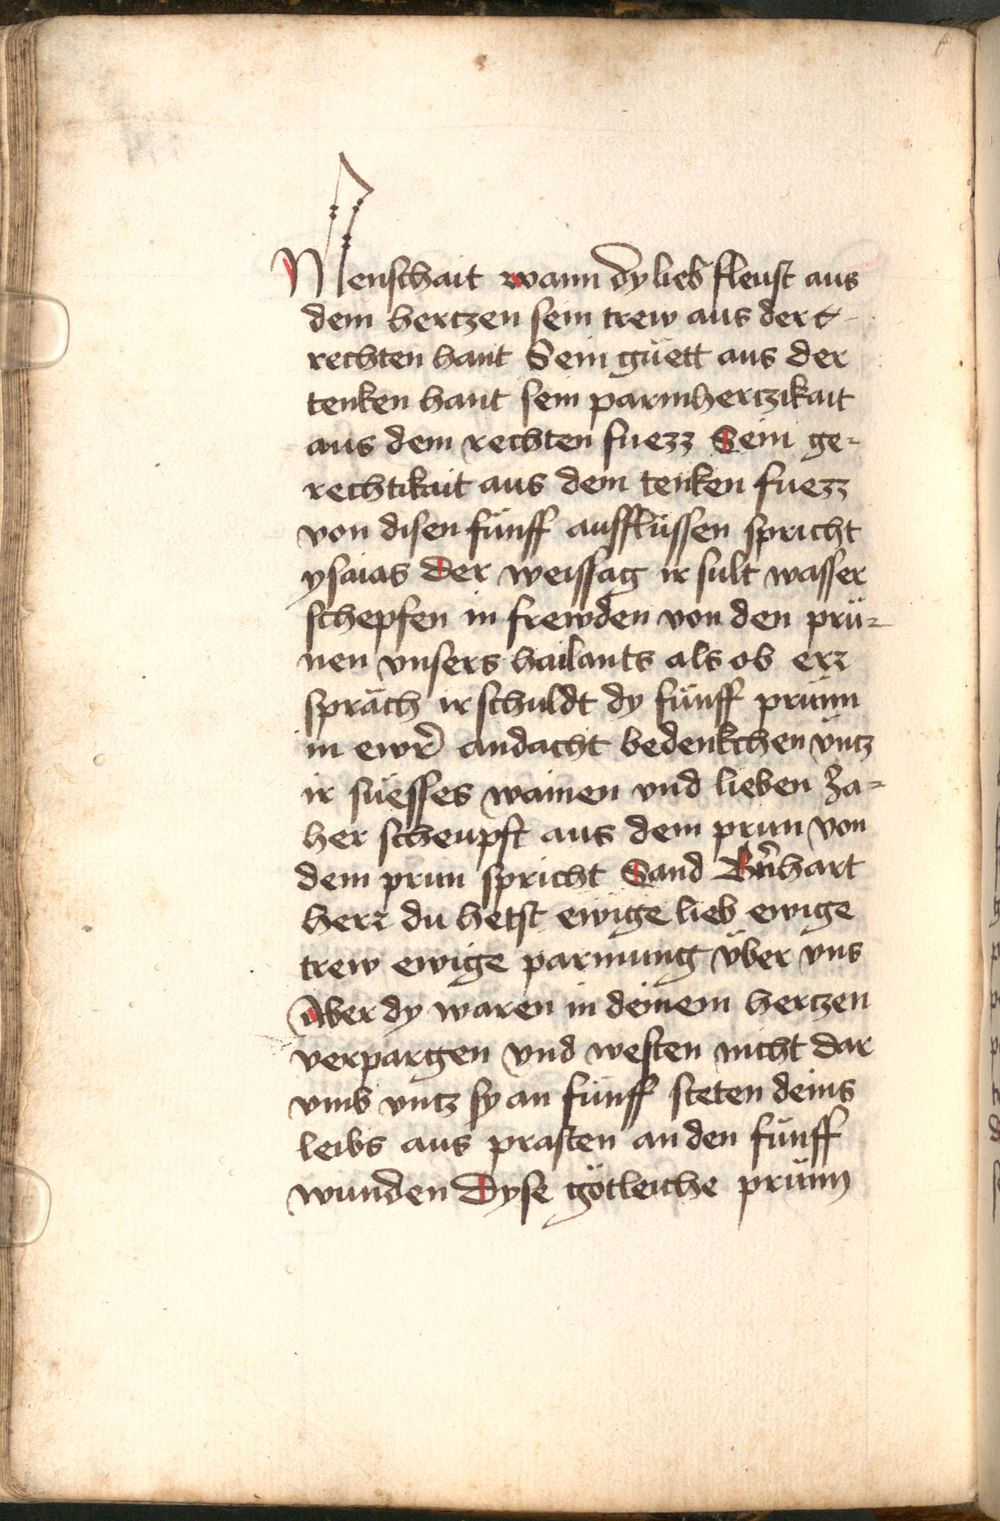 Menschait wann dy lieb fleust aus
dem hertzen sein trew aus der
rechten hant Sein güett aus der
tenken hant sein parmhertzikait
aus dem rechten fuezz Sein ge-
rechtikait aus dem tenken fuezz
von disen fünff ausflüssen spricht
ysaias der weissag ir sult wasser
schepfen in frewden von den prü-
nen vnsers hailants als ob err
spräch ir schuldt dy fünff prünn
in ewr̄ andacht bedenkchen vntz
ir süesses wainen vnd lieben Za-
her scheupft aus dem prun von
dem prun spricht Sand Bn̄hart
herr du hetst ewige lieb ewige
trew ewige parmung über vns
Aber dy waren in deinem hertzen
verpargen vnd westen nicht dar
vmb vntz sy an fünff steten deins
leibs aus prasten an den fünff
wunden Dyse götleiche prünn